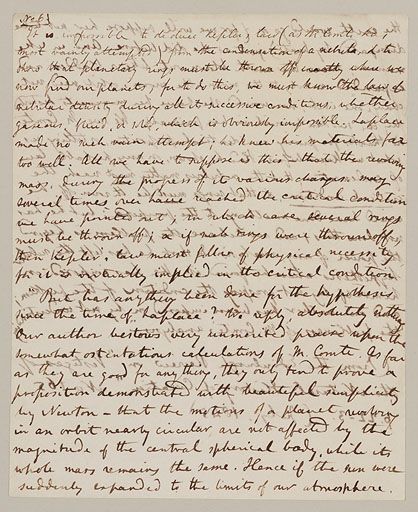 No 6.)
It is impossible to deduce Kepler's law (as M. Comte has
most vainly attempted) from the condensation of a nebula, & to
show that planetary rings must be thrown off exactly where we
now find our planets; for to do this, we must know the law of
nebular density during all its successive conditions, whether
gaseous, fluid, or solid which is obviously impossible. Laplace
made no such vain attempt; he knew his materials far
too well. All we have to suppose is this – that the revolving
mass, during the progress of its various changes, may
several times over have reached the critical condition
we have pointed out; in which case several rings
must be thrown off; & if such rings were thrown off,
then Kepler's law must follow of physical necessity
for it is virtually implied in the critical condition.
"But has anything been done for the hypothesis
since the time of Laplace? We reply, absolutely nothing.
Our author bestows very unmerited praise upon the
somewhat ostentatious calculations of M. Comte. As far
as they are good for any thing they only tend to prove a
proposition demonstrated with beautiful simplicity
by Newton – that the motions of a planet revolving
in an orbit nearly circular are not affected by the
magnitude of the central spherical body, while its
whole mass remains the same. Hence if the sun were
suddenly expanded to the limits of our atmosphere.